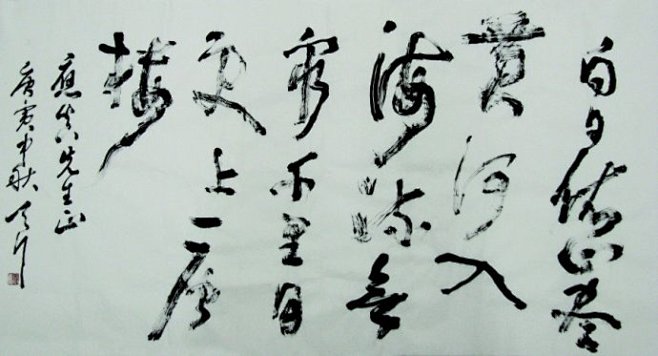 白日依山尽
黄河入
海流
穷千里目
更上一层
楼
先生正
庚寅中秋